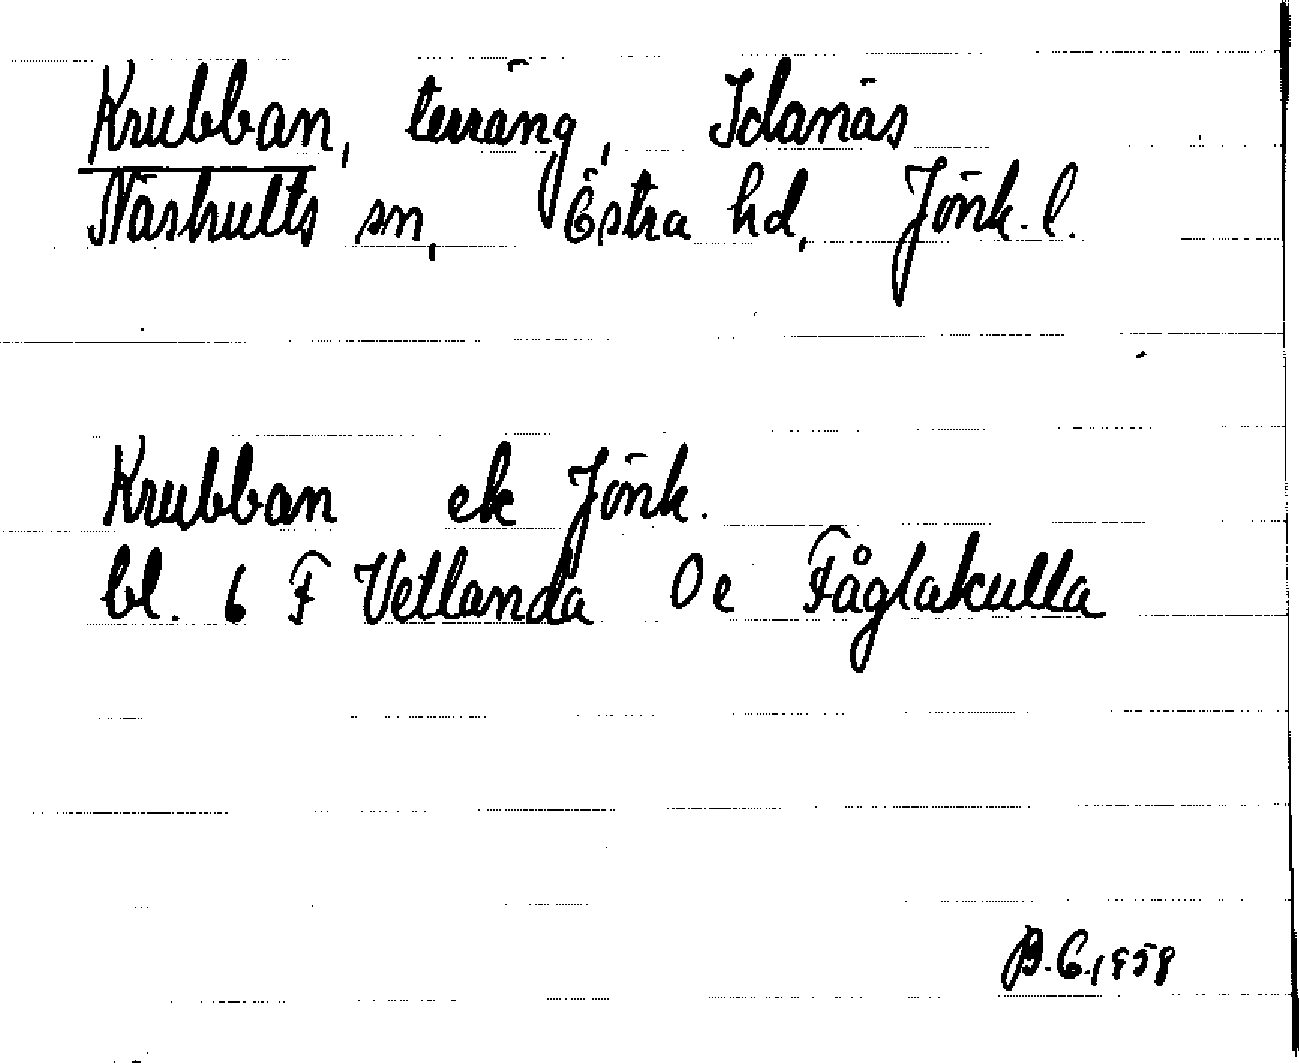 Krubban, terräng, Idanäs
Näshults sn, Östra hd, Jönk. l.
Krubban ek Jönk.
bl. 6 F Vetlanda 0 e Fåglakulla
B.G. 1958